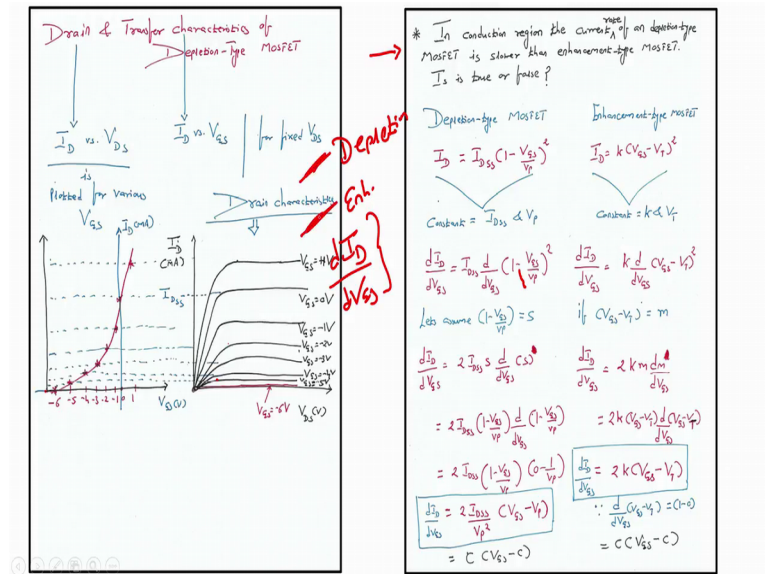 Drain & Transfer characteristics of
Depletion-Type MOSFET
I_D vs. V_DS
is
Plotted for various
V_GS
I_D vs. V_GS | for fixed V_DS
Drain characteristics
I_D(mA)
I_D
(mA)
I_DSS
V_GS=+1V
V_GS=0V
V_GS=-1V
V_GS=-2V
V_GS=-3V
V_GS=-4V
V_GS=-5V
V_GS=-6V
-6 -5 -4 -3 -2 -1 0 1
V_GS(V)
V_DS(V)
Depletion
Enh.
dI_D
dV_GS
* In conduction region the current rate of an depletion-type
MOSFET is slower than enhancement-type MOSFET.
Is is true or false?
Depletion-type MOSFET
I_D = I_DSS(1-V_GS/V_P)^2
Constant = I_DSS & V_P
dI_D/dV_GS = I_DSS d/dV_GS (1-V_GS/V_P)^2
Lets assume (1-V_GS/V_P) = S
dI_D/dV_GS = 2I_DSS S d/dV_GS (S)
= 2I_DSS (1-V_GS/V_P) d/dV_GS (1-V_GS/V_P)
= 2I_DSS (1-V_GS/V_P) (0-1/V_P)
dI_D/dV_GS = 2I_DSS/V_P^2 (V_GS-V_P)
= C (V_GS-C)
Enhancement-type MOSFET
I_D = k(V_GS-V_T)^2
Constant = k & V_T
dI_D/dV_GS = k d/dV_GS (V_GS-V_T)^2
if (V_GS-V_T) = m
dI_D/dV_GS = 2km dm/dV_GS
= 2k(V_GS-V_T) d/dV_GS (V_GS-V_T)
dI_D/dV_GS = 2k(V_GS-V_T)
∵ d/dV_GS (V_GS-V_T) = (1-0)
= C(V_GS-C)